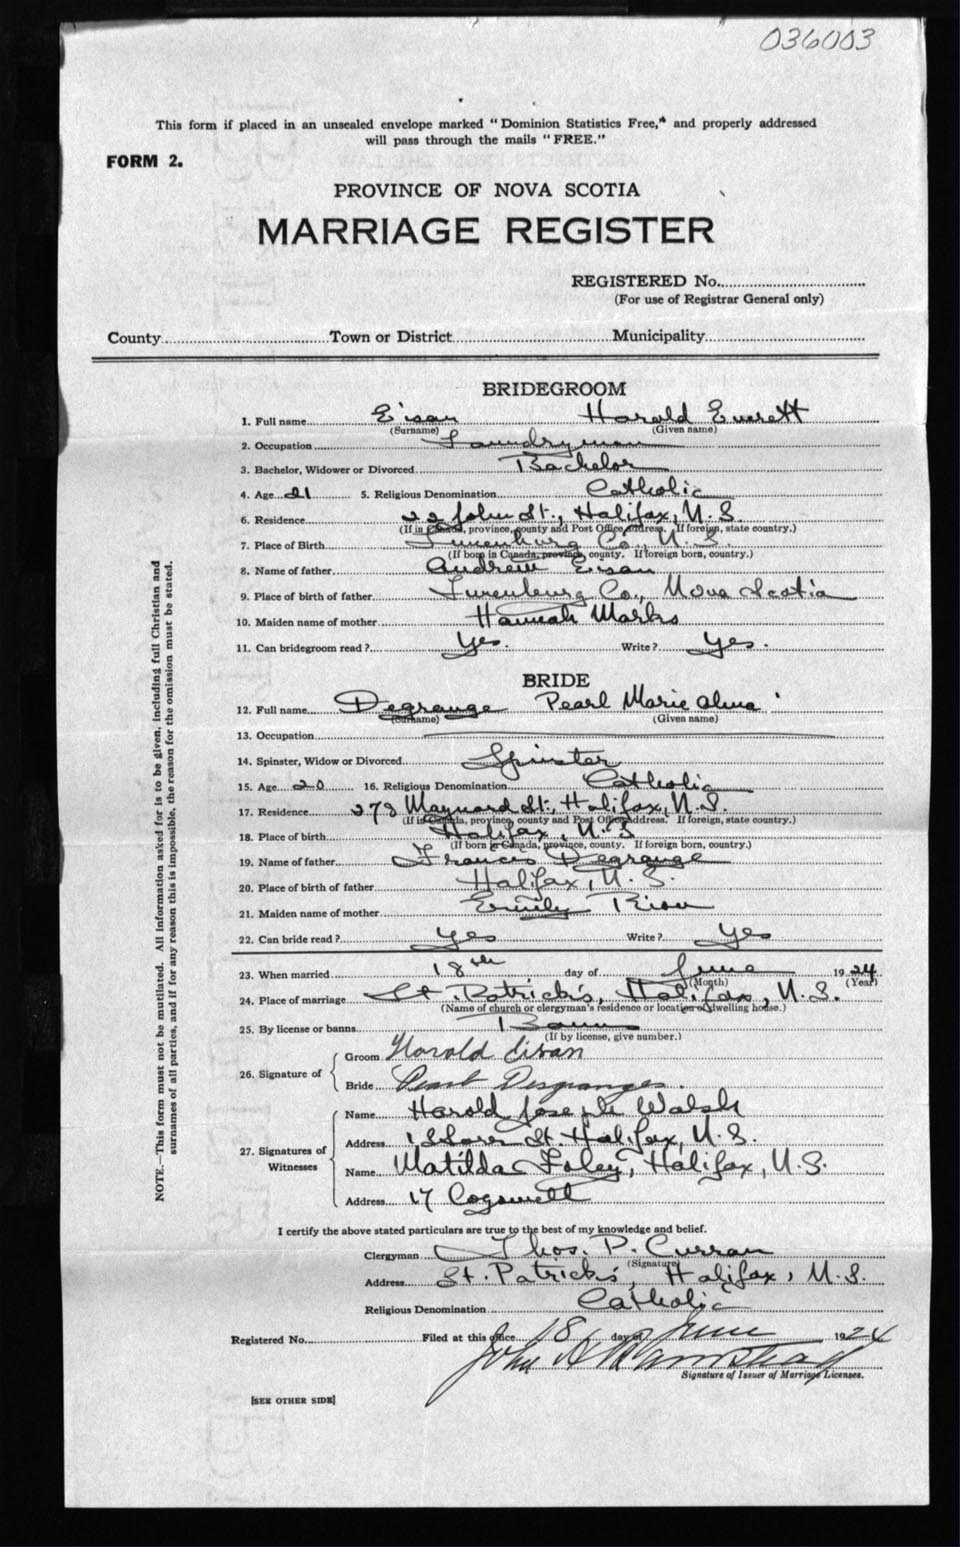 036003
This form if placed in an unsealed envelope marked "Dominion Statistics Free," and properly addressed
will pass through the mails "FREE."
FORM 2.
PROVINCE OF NOVA SCOTIA
MARRIAGE REGISTER
REGISTERED No.
(For use of Registrar General only)
County Town or District Municipality
BRIDEGROOM
1. Full name Eisan Harold Everett
(Surname) (Given name)
2. Occupation Laundryman
3. Bachelor, Widower or Divorced Bachelor
4. Age 21 5. Religious Denomination Catholic
6. Residence 22 John St., Halifax, N.S.
(If in Canada, province, county and Post Office address. If foreign, state country.)
7. Place of Birth Lunenburg Co., N.S.
(If born in Canada, province, county. If foreign born, country.)
8. Name of father Andrew Eisan
9. Place of birth of father Lunenburg Co., Nova Scotia
10. Maiden name of mother Hannah Marks
11. Can bridegroom read? Yes. Write? Yes.
BRIDE
12. Full name Degrange Pearl Marie Alma
(Surname) (Given name)
13. Occupation
14. Spinster, Widow or Divorced Spinster
15. Age 20 16. Religious Denomination Catholic
17. Residence 278 Maynard St., Halifax, N.S.
(If in Canada, province, county and Post Office address. If foreign, state country.)
18. Place of birth Halifax, N.S
(If born in Canada, province, county. If foreign born, country.)
19. Name of father Frances Degrange
20. Place of birth of father Halifax, N.S.
21. Maiden name of mother Emily
22. Can bride read? Yes Write? Yes
23. When married 18th day of June 1924
(Month) (Year)
24. Place of marriage St. Patrick's, Halifax, N.S.
(Name of church or clergyman's residence or location of dwelling house.)
25. By license or banns Banns
(If by license, give number.)
26. Signature of
Groom Harold Eisan
Bride Pearl Desgranges.
27. Signatures of Witnesses
Name Harold Joseph Walsh
Address St. Halifax, N.S.
Name Matilda Foley, Halifax, N.S.
Address 17 Cogswell
I certify the above stated particulars are true to the best of my knowledge and belief.
Clergyman Thos. P. Curran
(Signature)
Address St. Patrick's, Halifax, N.S.
Religious Denomination Catholic
Registered No. Filed at this office 18 day of June 1924
John A
Signature of Issuer of Marriage Licenses.
[SEE OTHER SIDE]
NOTE.—This form must not be mutilated. All information asked for is to be given, including full Christian and
surnames of all parties, and if for any reason this is impossible, the reason for the omission must be stated.